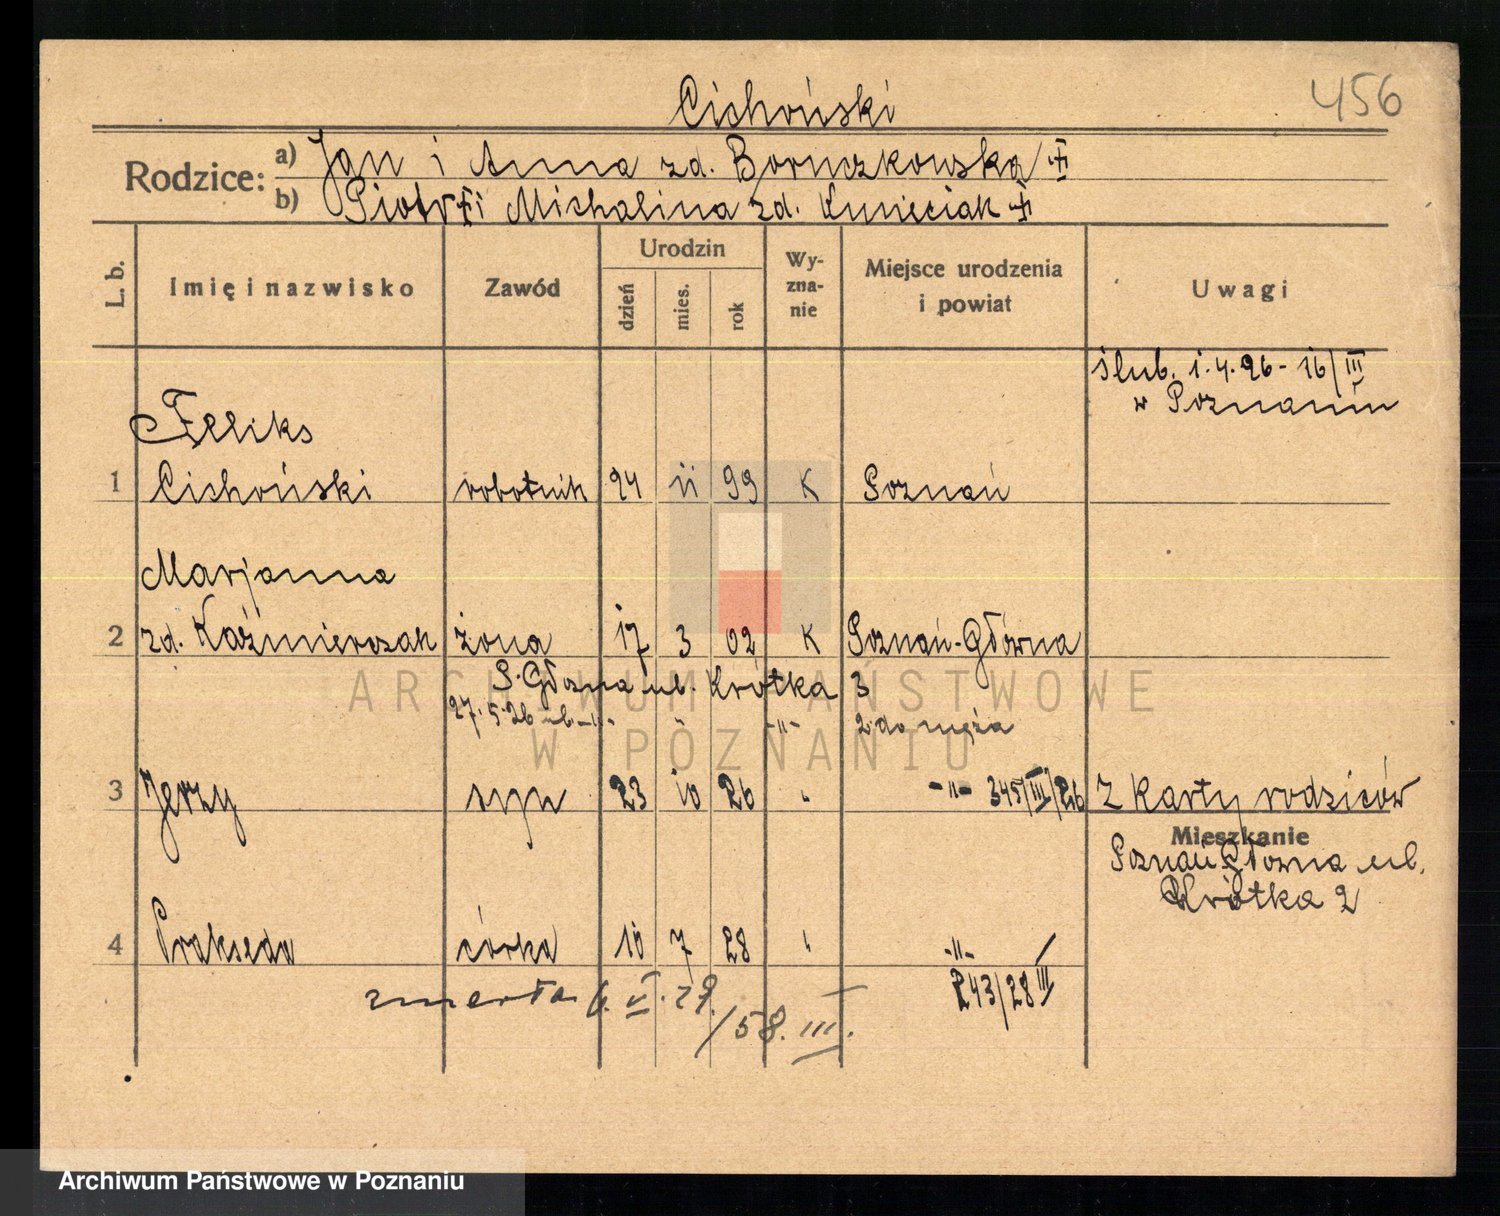 456
Cichoński
Rodzice:
a) Jan i Anna zd. Bornczkowska +
b) Piotr + i Michalina zd. Kunieciak +
L. b.
Imię i nazwisko
Zawód
Urodzin
dzień
mies.
rok
Wy-
zna-
nie
Miejsce urodzenia
i powiat
Uwagi
ślub. 1.4.26 - 16/III
w Poznaniu
Feliks
1 Cichoński robotnik 24 11 99 K Poznań
Marjanna
2 zd. Kaźmierczak żona 17 3 02 K Poznań-Główna
P. Główna ul. Krótka 3
27.5.26 ub -"- -"- 2 do męża
3 Jerzy syn 23 10 26 " -"- 345/III/26 z karty rodziców
Mieszkanie
Poznań Główna ul.
Krótka 2
4 Prakseda córka 10 7 28 " -"-
243/28 III
zmarła 6.V.29.
/58.III.
ARCHIWUM PAŃSTWOWE
W POZNANIU
Archiwum Państwowe w Poznaniu